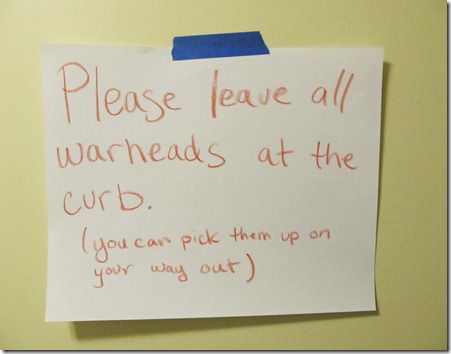 Please leave all
warheads at the
curb.
(you can pick them up on
your way out)